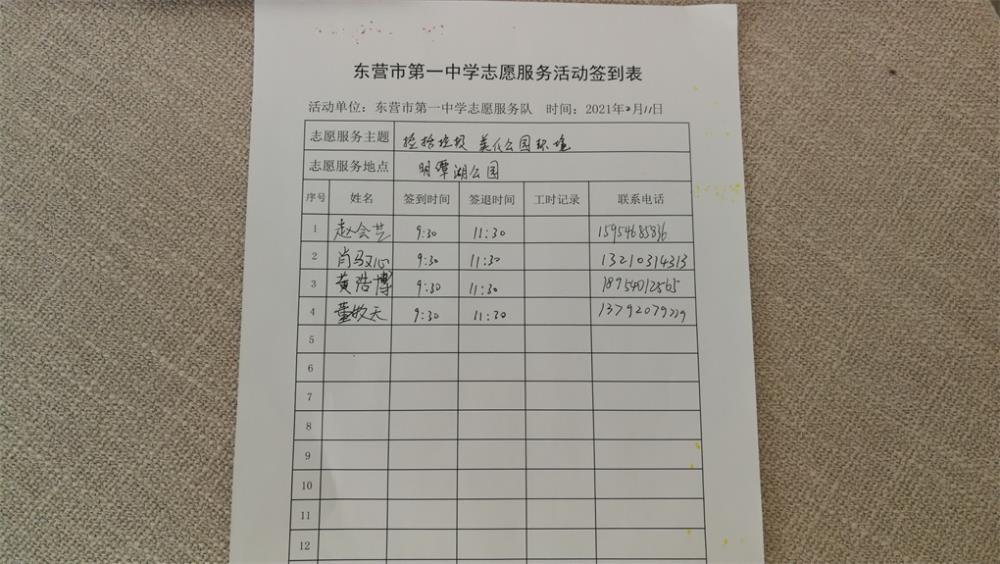 东营市第一中学志愿服务活动签到表
活动单位：东营市第一中学志愿服务队 时间：2021年2月11日
志愿服务主题 捡拾垃圾 美化公园环境
志愿服务地点 明潭湖公园
序号 姓名 签到时间 签退时间 工时记录 联系电话
1 赵会芸 9:30 11:30 15954685836
2 肖驭心 9:30 11:30 13210314313
3 黄浩博 9:30 11:30 18954012565
4 董牧天 9:30 11:30 13792079229
5
6
7
8
9
10
11
12